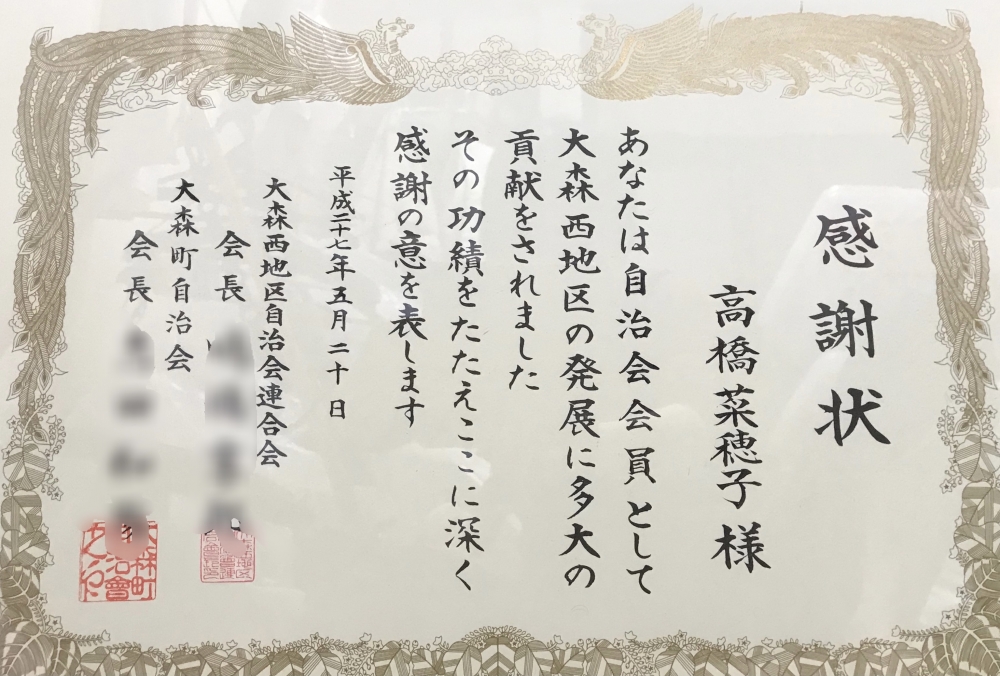 感謝状
高橋菜穂子様
あなたは自治会会員として
大森西地区の発展に多大の
貢献をされました
その功績をたたえここに深く
感謝の意を表します
平成二十七年五月二十日
大森西地区自治会連合会
会長
大森町自治会
会長